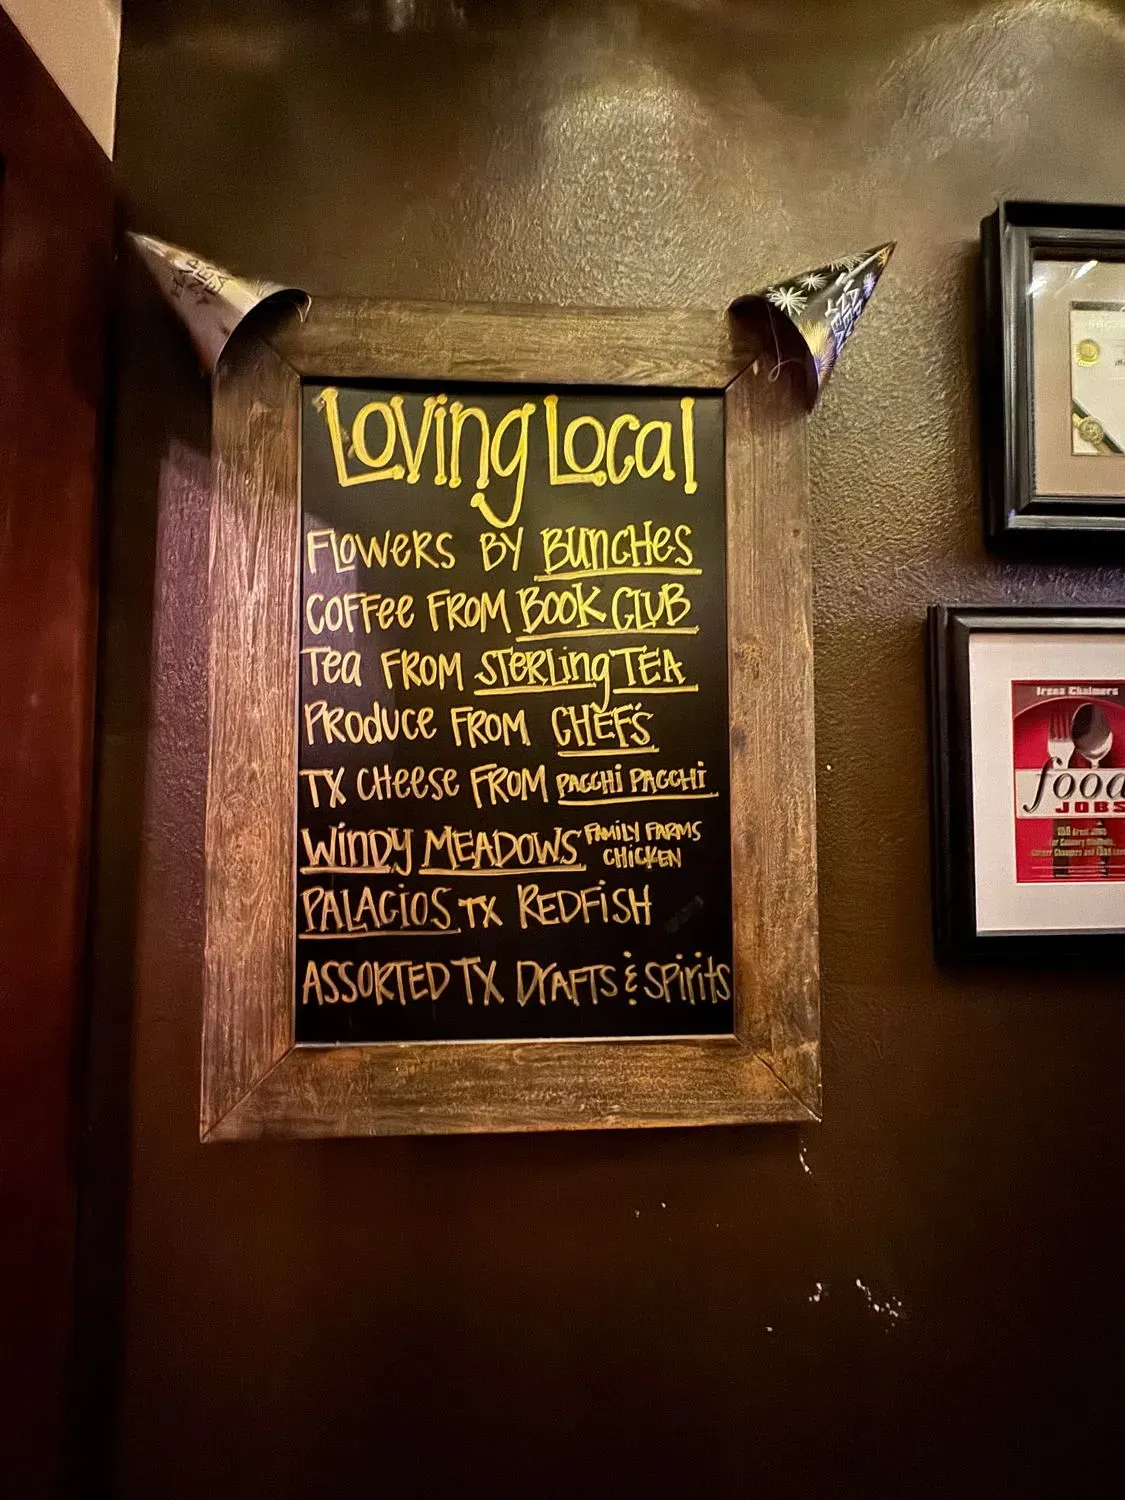 Loving Local
FLOWERS BY BUNCHES
COFFEE FROM BOOK CLUB
TEA FROM STERLING TEA
PRODUCE FROM CHEF'S
TX CHEESE FROM PACCHI PACCHI
WINDY MEADOWS FAMILY FARMS CHICKEN
PALACIOS TX REDFISH
ASSORTED TX DRAFTS & SPIRITS
HAPPY NEW YEAR
Irena Chalmers
food
JOBS
150 Great Jobs